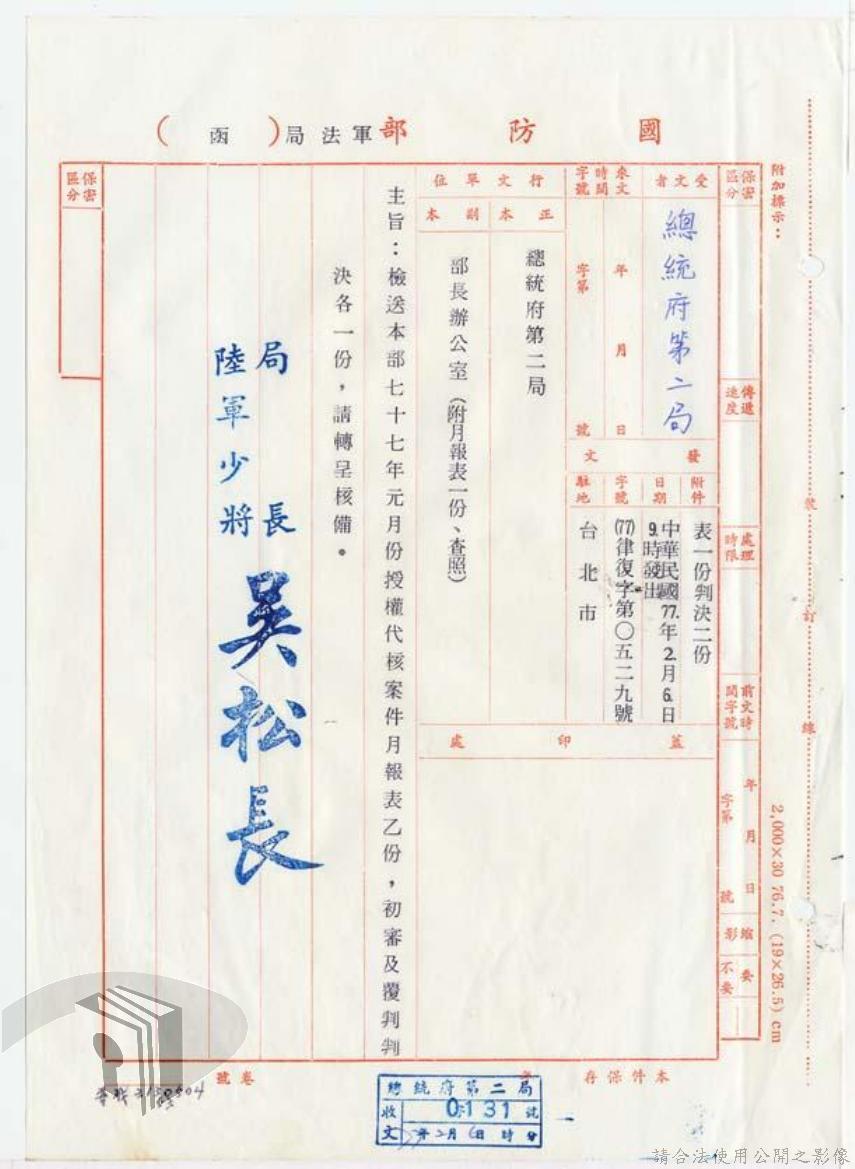 附加標示：
裝
訂
線
2,000×30 76.7. (19×26.5) cm
國防部軍法局（函）
保密區分
傳遞速度
處理時限
前文時間字號
年月日
字第號
縮影
要
不要
受文者
總統府第二局
來文時間字號
年月日
字第號
發文
附件
表一份判決二份
日期
中華民國77.年2月6日
9.時發出
字號
(77)律復字第〇五二九號
駐地
台北市
行文單位
正本
總統府第二局
副本
部長辦公室（附月報表一份、查照）
蓋印處
主旨：檢送本部七十七年元月份授權代核案件月報表乙份，初審及覆判判
決各一份，請轉呈核備。
局長
陸軍少將
吳松長
保密區分
本件保存
卷號
總統府第二局
收文
0131號
年2月6日時分
請合法使用公開之影像